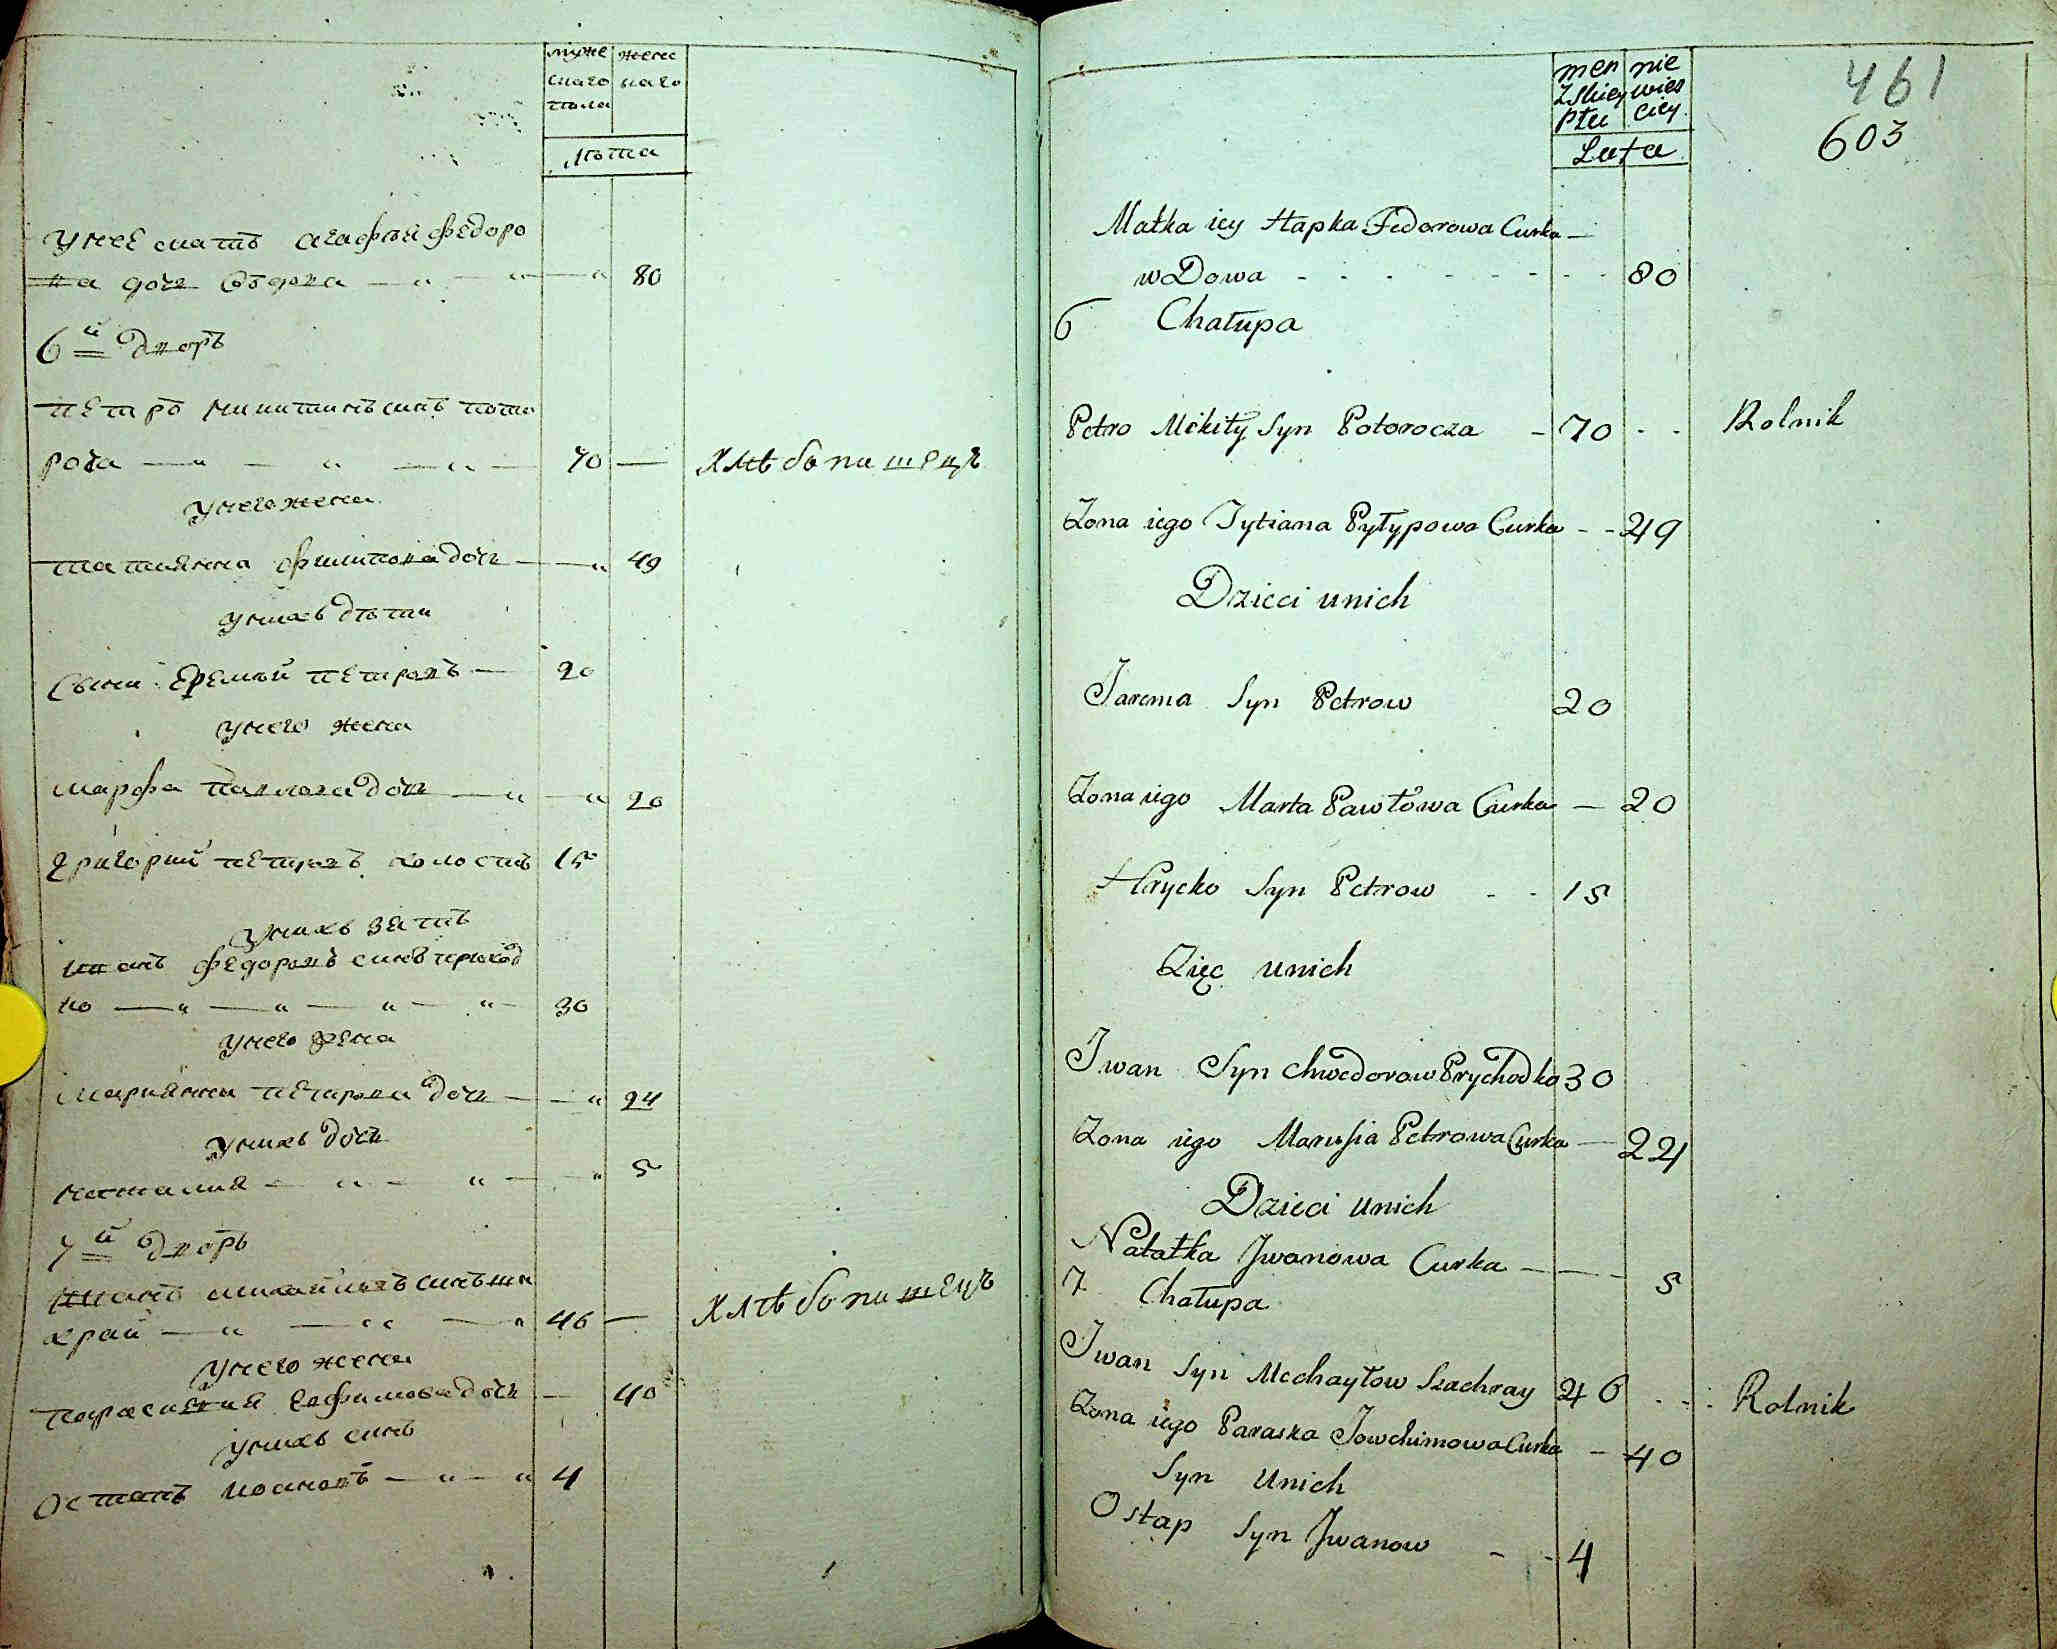 муже жен
скаго скаго
пола
лѣта
у нее мать агафия федоро
ва дочь вдова — " — " — " 80
6й дворъ
петро микитинъ синъ пото
роча — " — " — " — 70 — хлѣбопашецъ
у него жена
татиянна филипова дочь — — " 49
у нихъ дѣти
сыни: еремѣй петровъ — 20
у него жена
марфа павлова дочь — " — " 20
григорий петровъ холостъ 15
у нихъ зять
иванъ федоровъ синъ приход
ко — " — " — " — " — 30
у него жена
марианна петрова дочь — — " 24
у нихъ дочь
наталия — " — " — " 5
7й дворъ
иванъ михайловъ синъ ша
храй — " — " — " 46 — хлѣбопашецъ
у него жена
параскевия ефимова дочь — 40
у нихъ синъ
остапъ ивановъ — " — " 4
męn nie
zskiey wies
płci ciey
Lata
461
603
Matka iey Hapka Fedorowa Curka —
wDowa - - - - - - - - 80
6 Chałupa
Petro Mikity Syn Potorocza - 70 - - Rolnik
Zona iego Tytiana Pyłypowa Curka - - 49
Dzieci unich
Jarema Syn Petrow 20
Zona iego Marta Pawłowa Curka — 20
Hrycko Syn Petrow - - 15
Zięc unich
Iwan Syn Chwedorow Prychodko 30
Zona iego Marusia Petrowa Curka — 24
Dzieci unich
Natałka Jwanowa Curka — — - 5
7 Chałupa
Iwan Syn Mechayłow Szachray 46 - - Rolnik
Zona iego Paraska Jowchimowa Curka - 40
Syn Unich
Ostap Syn Jwanow - - 4